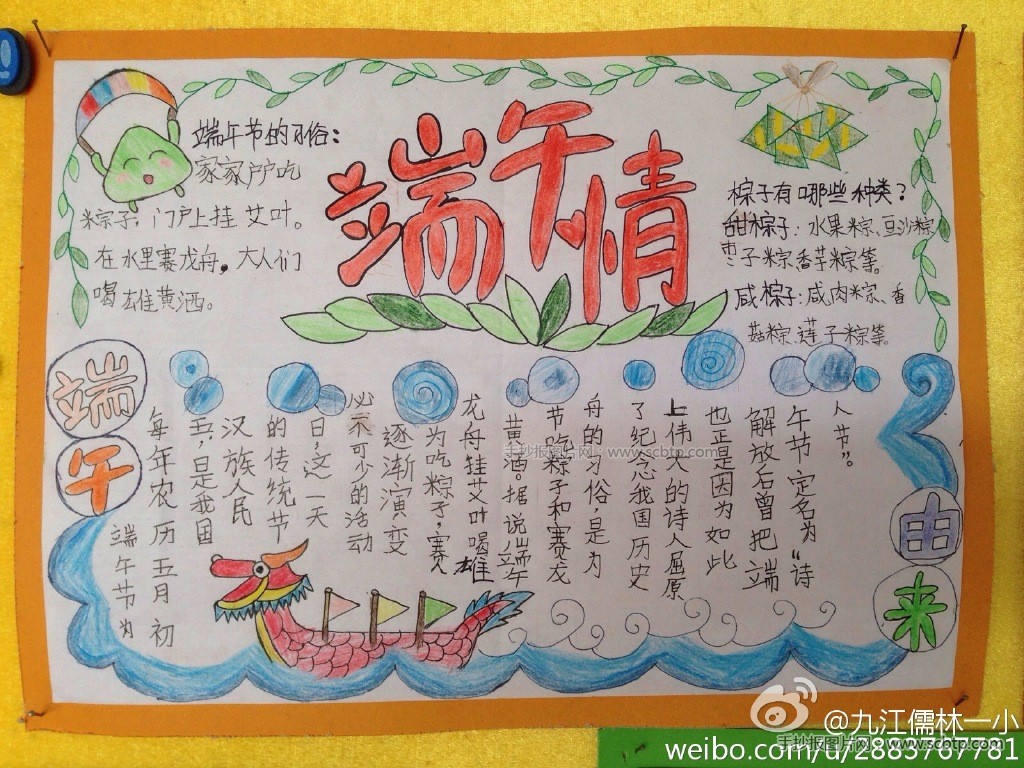 端午节的习俗：
家家户户吃
粽子，门户上挂艾叶。
在水里赛龙舟，大人们
喝雄黄酒。
端午情
粽子有哪些种类？
甜粽子：水果粽、豆沙粽
枣子粽、香芋粽等。
咸粽子：咸肉粽、香
菇粽、莲子粽等。
端午
由来
端午节为
每年农历五月初
五，是我国
汉族人民
的传统节
日，这一天
必不可少的活动
逐渐演变
为吃粽子，赛
龙舟挂艾叶喝雄
黄酒。据说端午
节吃粽子和赛龙
舟的习俗，是为
了纪念我国历史
上伟大的诗人屈原
也正是因为如此
解放后曾把端
午节定名为“诗
人节”。
手抄报图片网：www.scbtp.com
@九江儒林一小
手抄报图片网：www.scbtp.com
weibo.com/u/2883767781